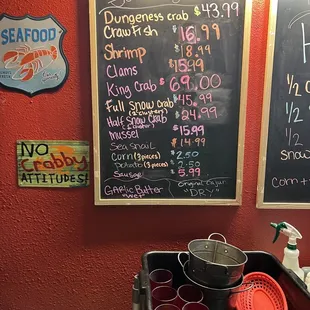 SEAFOOD
NO
Crabby
ATTITUDES!
Dungeness crab $43.99
Craw Fish $16.99
Shrimp $18.99
Clams $15.99
King Crab $69.00
Full Snow Crab $45.99
(2 clusters)
Half Snow Crab $24.99
Mussel $15.99
Sea snail $14.99
Corn (3 pieces) $2.50
Potato (3 pieces) $2.50
Sausage $5.99
Garlic Butter
"WET"
Original Cajun
"DRY"
H
1/2
1/2
1/2
Snow
Corn +